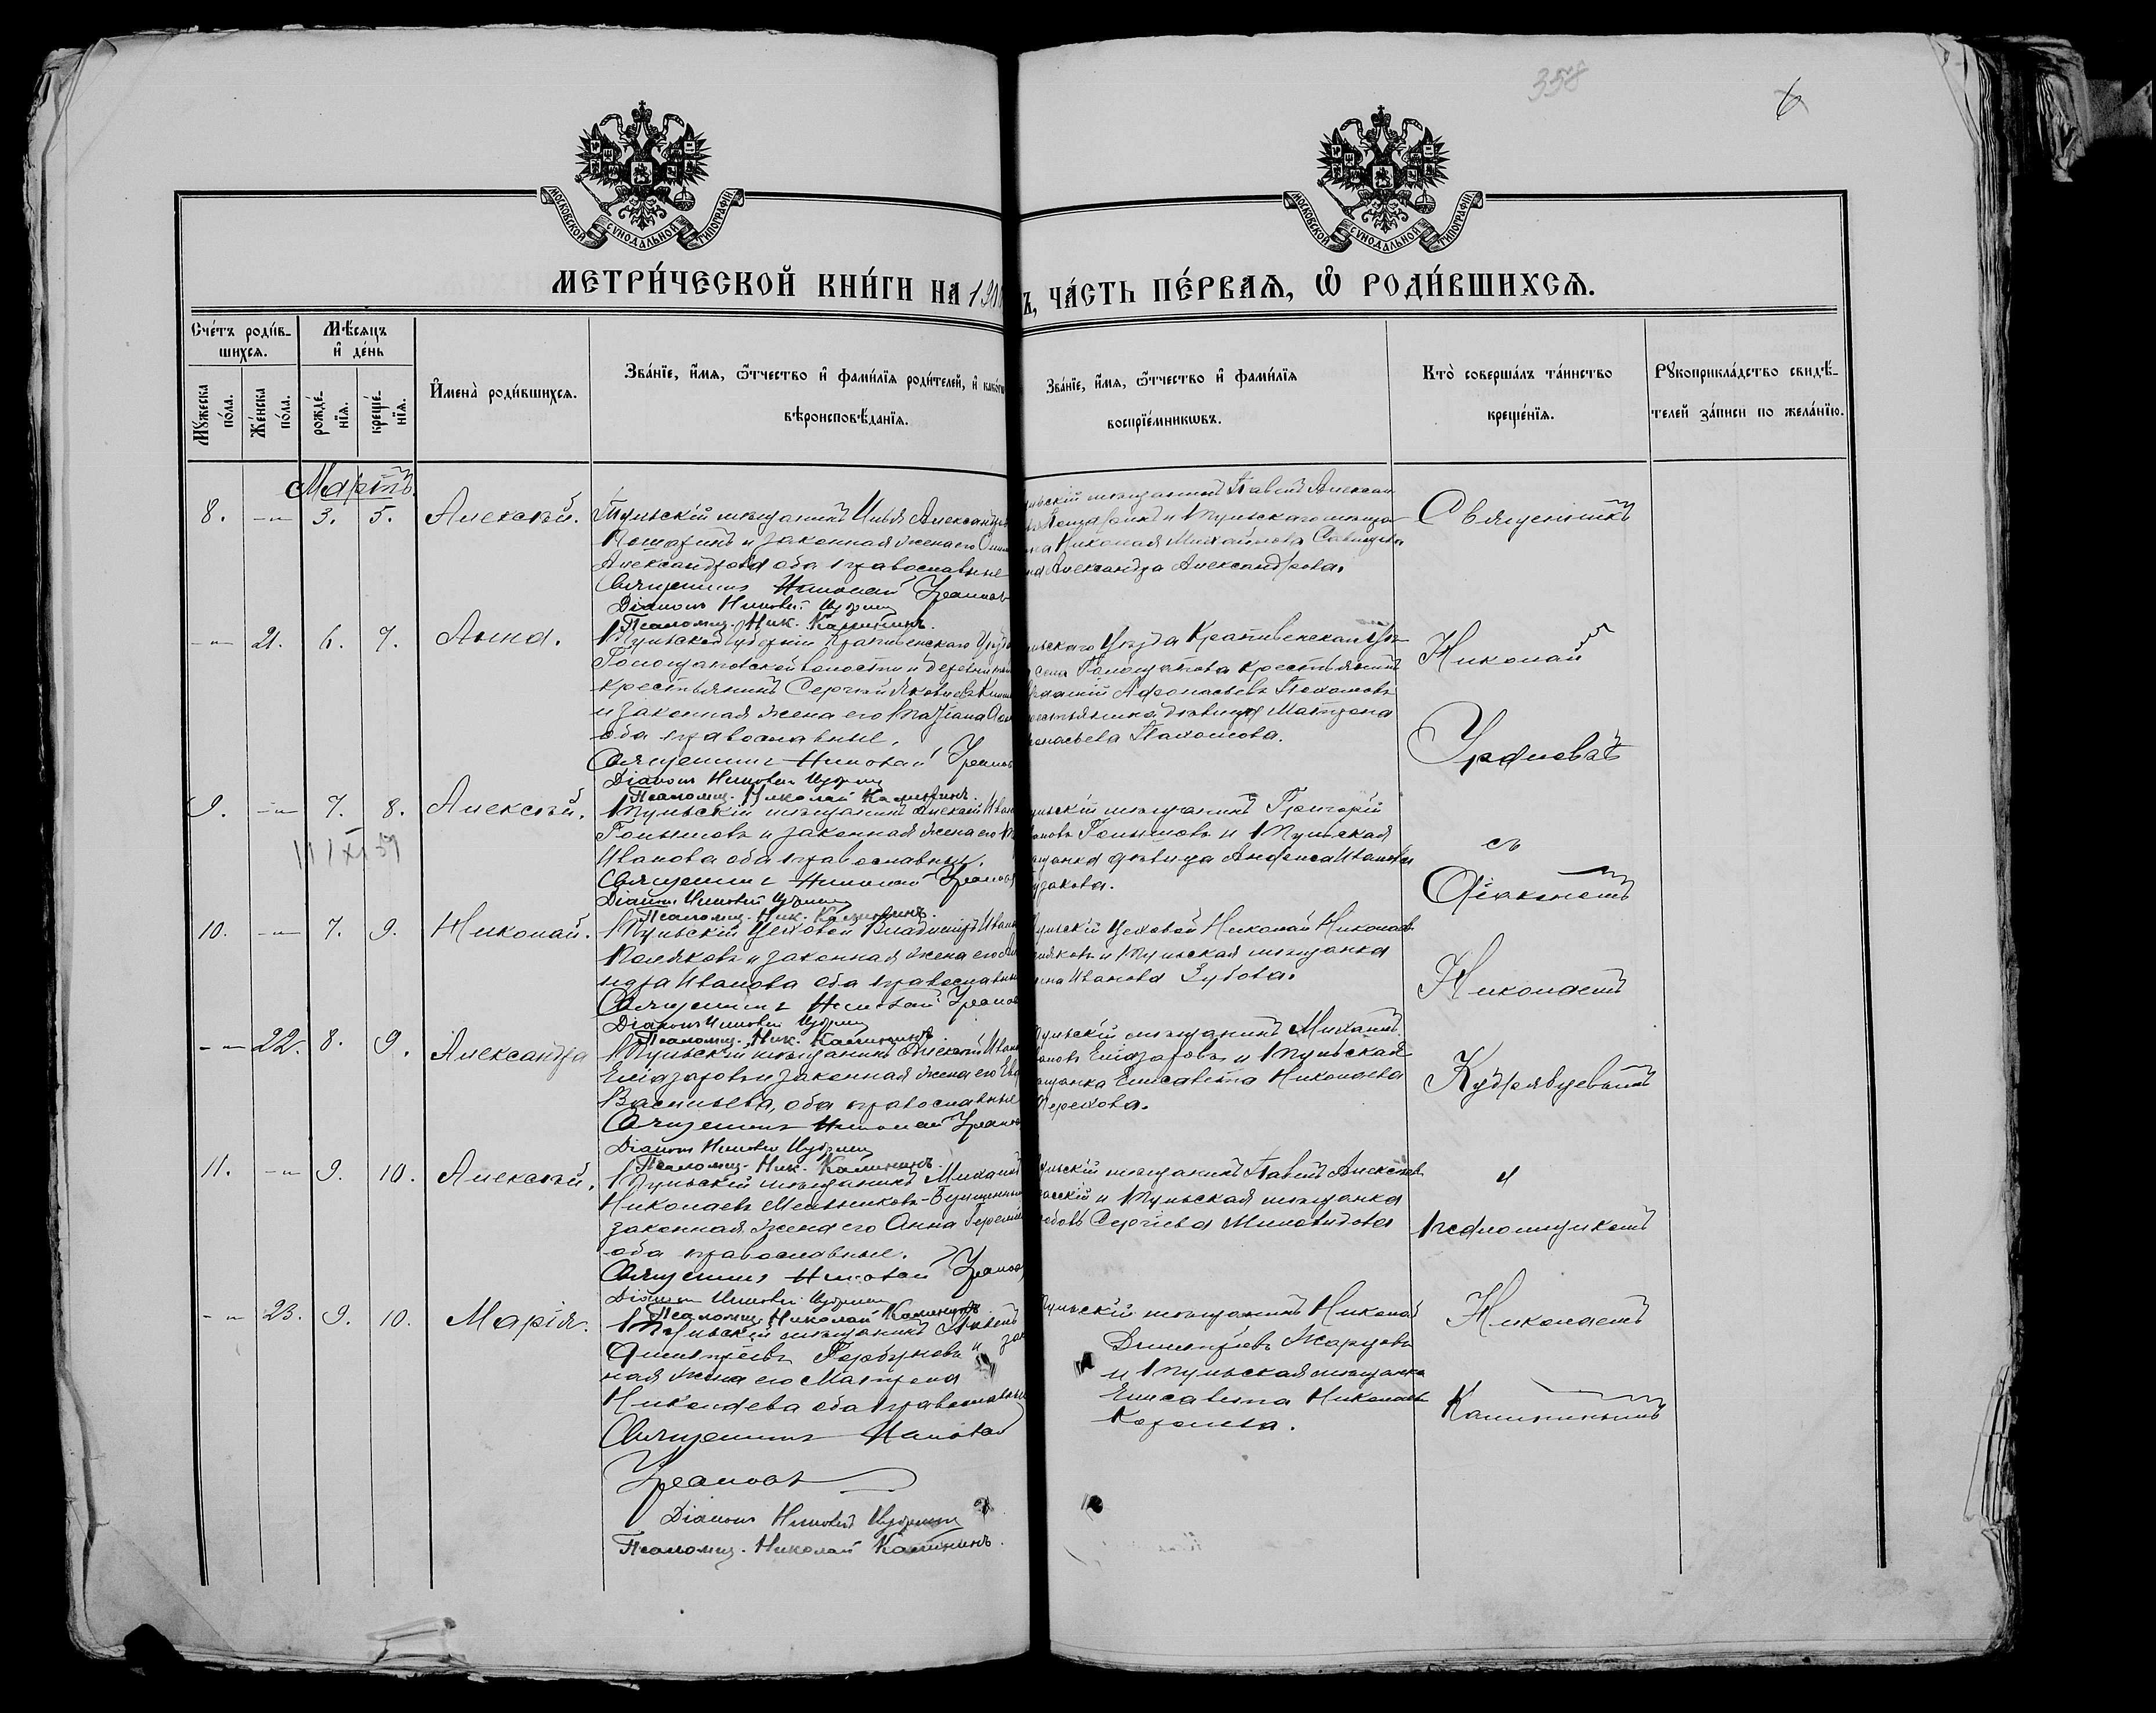 358
6
МОСКОВСКОЙ СУНОДАЛЬНОЙ ТИПОГРАФІИ
МОСКОВСКОЙ СУНОДАЛЬНОЙ ТИПОГРАФІИ
МЕТРИ́ЧЕСКОЙ КНИ́ГИ НА 190
Ъ, ЧА́СТЬ ПЕ́РВАѦ, Ѡ РОДИ́ВШИХСѦ.
Сче́тъ роди́в-
шихсѧ.
Мꙋжеска по́ла.
Же́нска по́ла.
Мѣ́сѧцъ
и҆ де́нь
рожде́-нїѧ.
креще́-нїѧ.
И҆мена̀ роди́вшихсѧ.
Зва́нїе, и҆́мѧ, ѻ҆́тчество и҆ фами́лїѧ роди́телей, и҆
вѣроисповѣ́данїѧ.
Зва́нїе, и҆́мѧ, ѻ҆́тчество и҆ фами́лїѧ
воспрїе́мникωвъ.
Кто̀ соверша́лъ та́инство
креще́нїѧ.
Рꙋкоприкла́дство свидѣ́-
телей за́писи по жела́нїю.
Мартъ.
8. -"- 3. 5. Алексѣй.
Тульскій мѣщанинъ Илья Александр
и законная жена его
Александрова оба православные
Священникъ Николай Урановъ
Діаконъ Николай Кудрявц
Псаломщ. Ник. Калининъ.
льскій мѣщанинъ Павелъ Алексан
и Тульскаго мѣща
на Николая Михайлова
на Александра Александрова.
-"- 21. 6. 7. Анна.
Тульской губерніи Крапивенскаго Уѣзда
Голощаповской волости и деревни
крестьянинъ Сергій Яковлевъ
и законная жена его Татіана
оба православные.
Священникъ Николай Урановъ
Діаконъ Николай Кудрявц
Псаломщ. Николай Калининъ.
Уѣзда Крапивенской
села Голощапова крестьянинъ
Афонасьевъ Пахомовъ
крестьянка дѣвица Матрона
онасьева Пахомова.
9. -"- 7. 8. Алексѣй.
Тульскій мѣщанинъ Алексѣй Иван
Голышовъ и законная жена его
Иванова оба православные.
Священникъ Николай Урановъ
Діаконъ Николай Кудрявц
Псаломщ. Ник. Калининъ.
ульскій мѣщанинъ Григорій
ановъ Голышовъ и Тульская
щанка дѣвица Анфиса Иванова
10. -"- 7. 9. Николай.
Тульскій Цеховой Владиміръ Иван
Поляковъ и законная жена его
Иванова оба православные
Священникъ Николай Урановъ
Діаконъ Николай Кудрявц
Псаломщ. Ник. Калининъ.
Тульскій Цеховой Николай Николаев
ляковъ и Тульская мѣщанка
Иванова Зубова.
-"- 22. 8. 9. Александра
Тульскій мѣщанинъ Алексѣй Иван
Еліазаровъ и законная жена его
Васильева, оба православные
Священникъ Николай Урановъ
Діаконъ Николай Кудрявц
Псаломщ. Ник. Калининъ.
Тульскій мѣщанинъ Михаилъ
ановъ Еліазаровъ и Тульская
щанка Елисавета Николаева
Терехова.
11. -"- 9. 10. Алексѣй.
Тульскій мѣщанинъ Михаилъ
Николаевъ Мельниковъ-
законная жена его Анна
оба православные.
Священникъ Николай Урановъ
Діаконъ Николай Кудрявц
Псаломщ. Николай Калининъ
ульскій мѣщанинъ Павелъ Алексѣев
и Тульская мѣщанка
Сергіева Миловидова
-"- 23. 9. 10. Марія.
Тульскій мѣщанинъ Павелъ
Дмитріевъ Горбуновъ и зак
ная жена его Матрена
Николаева оба православные
Священникъ Николай
Урановъ
Діаконъ Николай Кудрявц
Псаломщ. Николай Калининъ.
Тульскій мѣщанинъ Николай
Димитріевъ Жарковъ
и Тульская мѣщанка
Елисавета Николаев
Королева.
Священникъ
Николай
Урановъ
съ
Діакономъ
Николаемъ
Кудрявцевымъ
и
псаломщикомъ
Николаемъ
Калининымъ